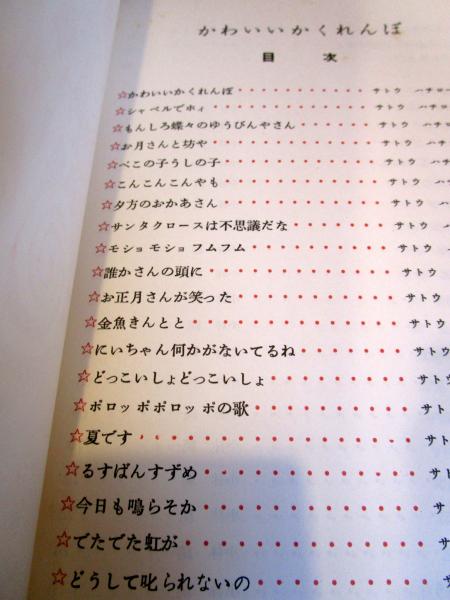 かわいいかくれんぼ
目次
☆かわいいかくれんぼ・・・・・・・・・・サトウ ハチロー
☆シャベルでホィ・・・・・・・・・・サトウ ハチロ
☆もんしろ蝶々のゆうびんやさん・・・・・・・サトウ ハチロ
☆お月さんと坊や・・・・・・・・・・サトウ ハチ
☆べこの子うしの子・・・・・・・・・・サトウ ハチ
☆こんこんこんやも・・・・・・・・・・サトウ ハチ
☆夕方のおかあさん・・・・・・・・・・サトウ ハ
☆サンタクロースは不思議だな・・・・・・・サトウ ハ
☆モショモショフムフム・・・・・・・・・サトウ ハ
☆誰かさんの頭に・・・・・・・・・・サトウ
☆お正月さんが笑った・・・・・・・・・サトウ
☆金魚きんとと・・・・・・・・・・・サトウ
☆にいちゃん何かがないてるね・・・・・・サトウ
☆どっこいしょどっこいしょ・・・・・・・サトウ
☆ポロッポポロッポの歌・・・・・・・・サト
☆夏です・・・・・・・・・・・・・サト
☆るすばんすずめ・・・・・・・・・・サト
☆今日も鳴らそか・・・・・・・・・・サ
☆でたでた虹が・・・・・・・・・・・サ
☆どうして叱られないの・・・・・・・・サ